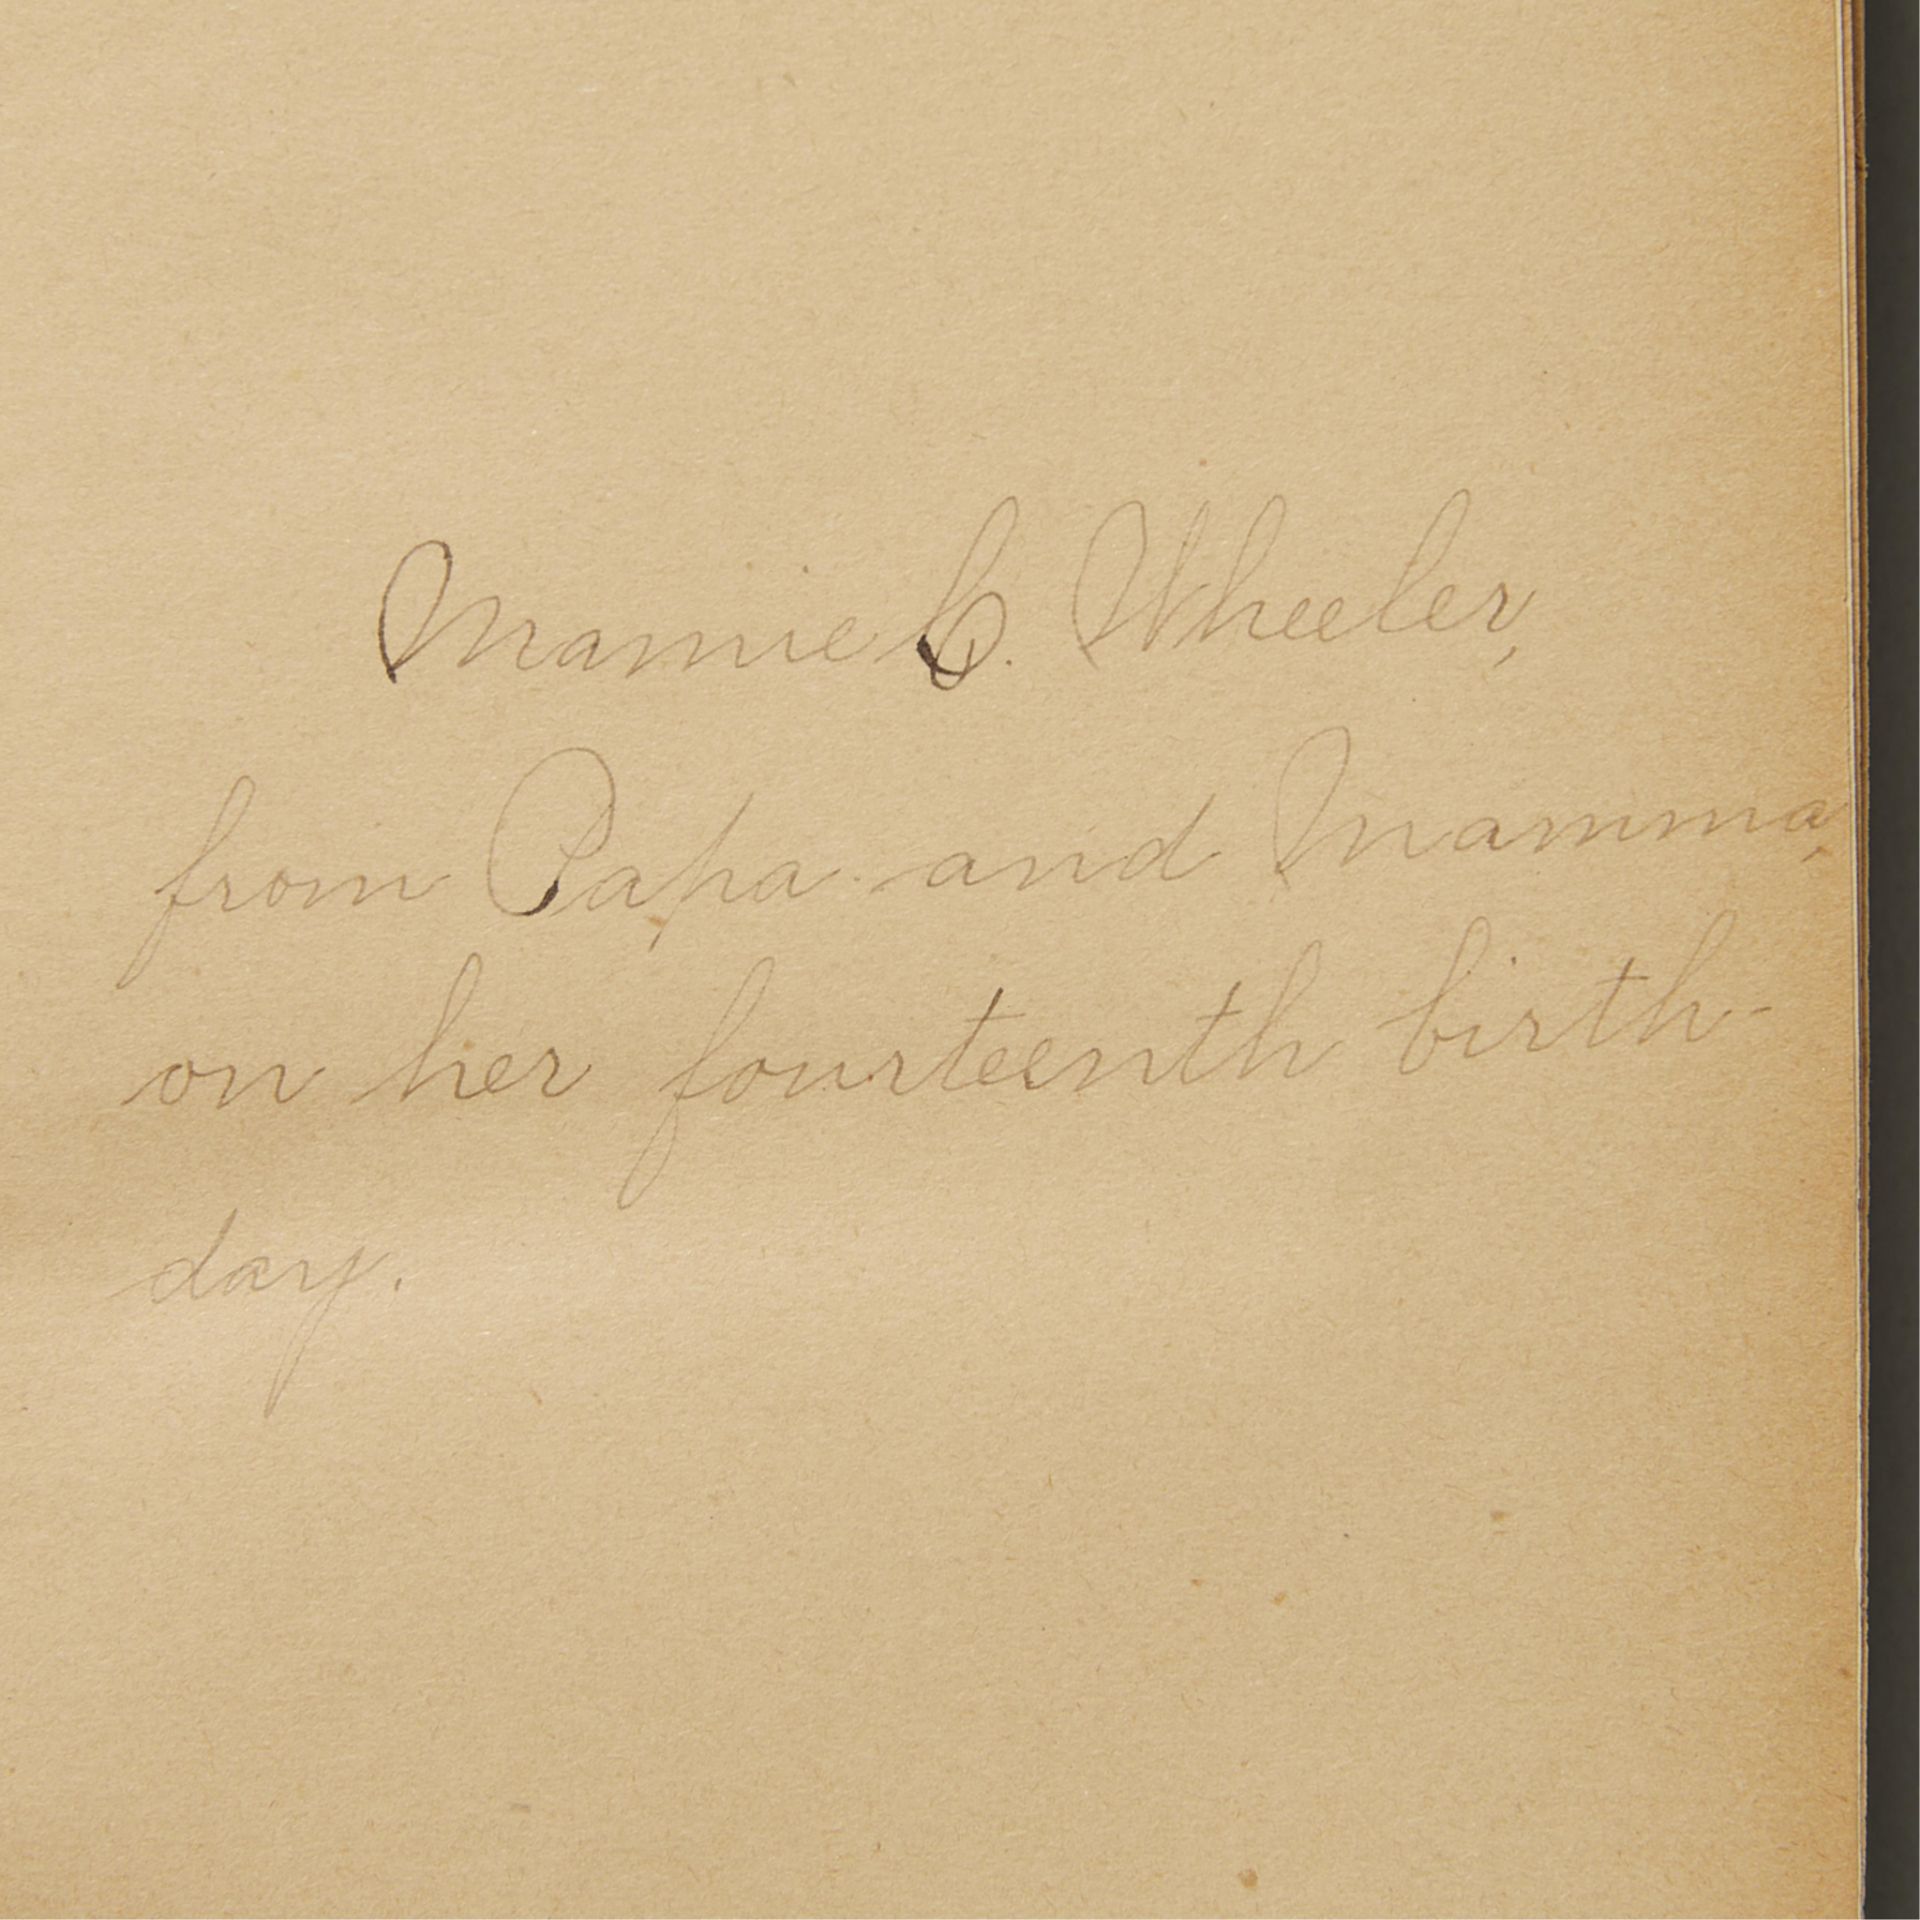 Mamie C. Wheeler,
from Papa and Mamma,
on her fourteenth birth-
day.